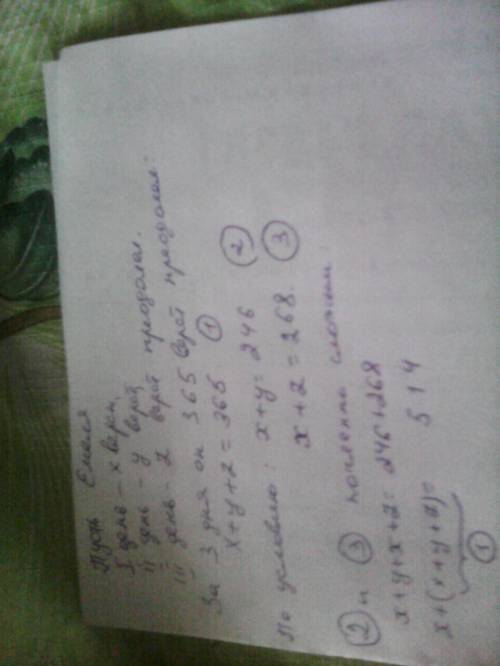 Пусть Емеля
I день - x верст,
II день - y верст
III день - z верст преодолел.
За 3 дня он 365 верст преодолел:
x+y+z=365 ①
По условию: x+y=246 ②
x+z=268. ③
② и ③ почленно сложим:
x+y+x+z=246+268
x+(x+y+z)=514
①